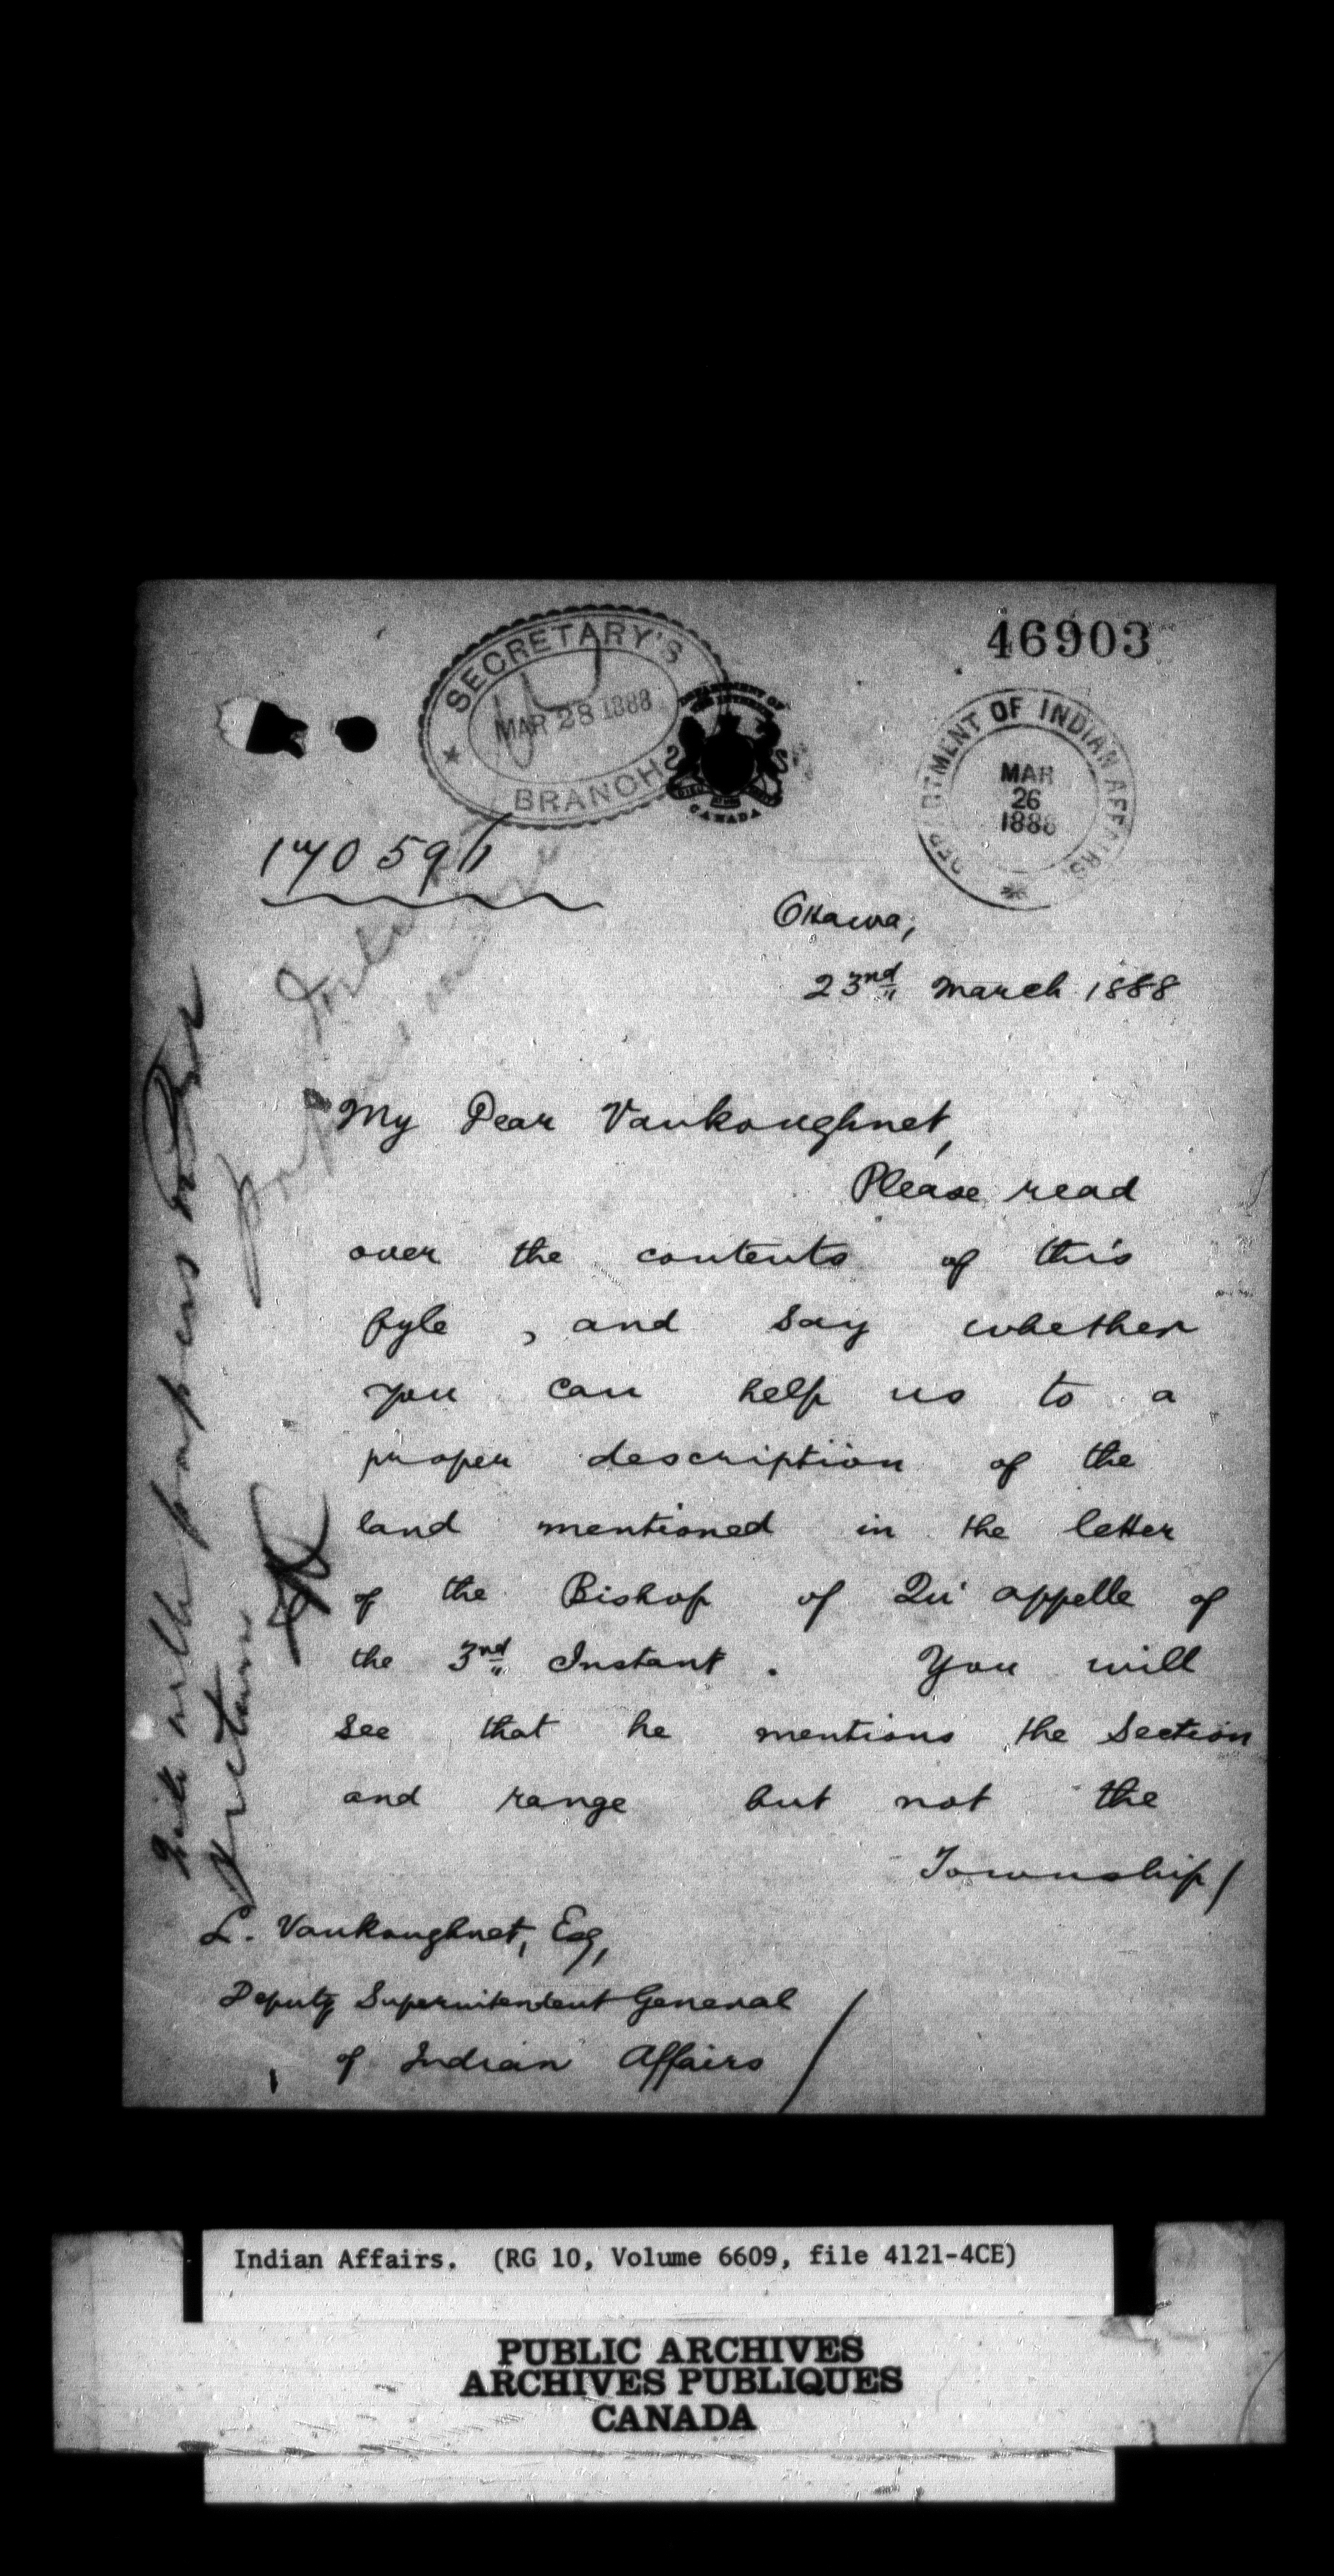 46903
SECRETARY'S
MAR 28 1888
BRANCH
DEPARTMENT OF
THE INTERIOR
CANADA
DEPARTMENT OF INDIAN AFFAIRS.
MAR
26
1888
170591
Ottawa,
23nd March 1888
My Dear Vankoughnet,
Please read
over the contents of this
fyle, and say whether
you can help us to a
proper description of the
land mentioned in the letter
of the Bishop of Qu'appelle of
the 3nd Instant. You will
see that he mentions the Section
and range but not the
Township/
L. Vankoughnet, Esq,
Deputy Superintendent General
of Indian Affairs /
with papers
Indian Affairs. (RG 10, Volume 6609, file 4121-4CE)
PUBLIC ARCHIVES
ARCHIVES PUBLIQUES
CANADA